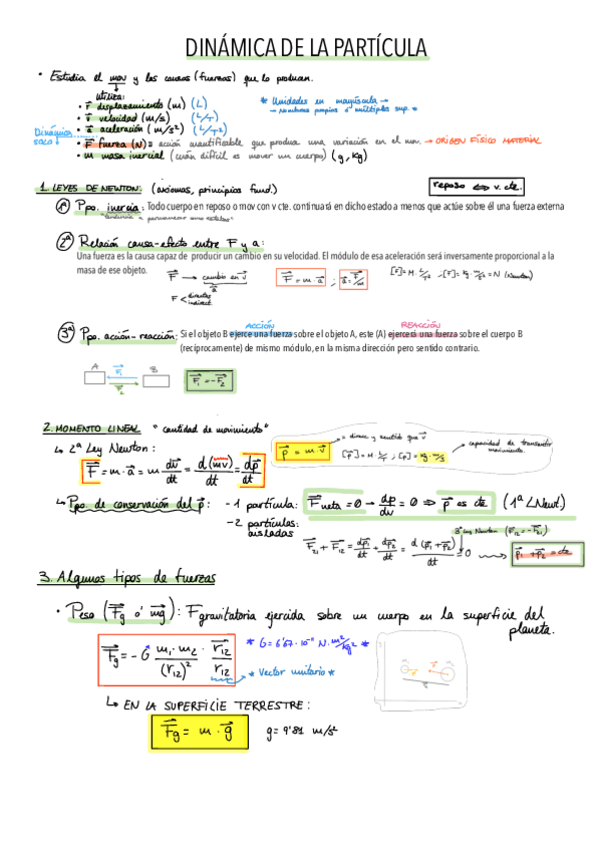 DINÁMICA DE LA PARTÍCULA
• Estudia el mov y las causas (fuerzas) que lo producen.
utiliza:
• r⃗ desplazamiento (m) (L)
• v⃗ velocidad (m/s) (L/T)
• a⃗ aceleración (m/s²) (L/T²)
• F⃗ fuerza (N) = acción cuantificable que produce una variación en el mov. → ORIGEN FÍSICO MATERIAL
• m masa inercial (cuán difícil es mover un cuerpo) (g, Kg)
* Unidades en mayúscula →
→ Nombres propios o múltiplos sup. *
Dinámica
solo
1. LEYES DE NEWTON: (axiomas, principios fund.)
reposo ⇔ v. cte.
1ª Ppo. inercia: Todo cuerpo en reposo o mov con v cte. continuará en dicho estado a menos que actúe sobre él una fuerza externa
"tendencia a permanecer en su estado"
2ª Relación causa-efecto entre F y a:
Una fuerza es la causa capaz de producir un cambio en su velocidad. El módulo de esa aceleración será inversamente proporcional a la
masa de ese objeto.
F⃗ → cambio en v⃗
a⃗
F⃗ = m · a⃗ ; a⃗ = F⃗/m
[F] = M · L/T² ; [F] = Kg · m/s² = N (Newton)
F < directas
indirect
ACCIÓN REACCIÓN
3ª Ppo. acción-reacción: Si el objeto B ejerce una fuerza sobre el objeto A, este (A) ejercerá una fuerza sobre el cuerpo B
(recíprocamente) de mismo módulo, en la misma dirección pero sentido contrario.
A B
F⃗₁
F⃗₂
F⃗₁ = -F⃗₂
2. MOMENTO LINEAL "cantidad de movimiento"
p⃗ = m · v⃗
= direcc y sentido que v⃗
[p⃗] = M · L/T ; [p] = Kg · m/s
capacidad de transmitir
movimiento.
↳ 2ª Ley Newton:
F⃗ = m · a⃗ = m dv⃗/dt = d(mv⃗)/dt = dp⃗/dt
↳ Ppo. de conservación del p⃗: - 1 partícula: F⃗neta = 0 → dp/dv = 0 ⇒ p⃗ es cte (1ª L Newt.)
- 2 partículas:
aisladas
3ª Ley Newton (F⃗₁₂ = -F⃗₂₁)
F⃗₂₁ + F⃗₁₂ = dp⃗₁/dt + dp⃗₂/dt = d(p⃗₁ + p⃗₂)/dt = 0 → p⃗₁ + p⃗₂ = cte
3. Algunos tipos de fuerzas
• Peso (F⃗g o' mg⃗): F gravitatoria ejercida sobre un cuerpo en la superficie del
planeta.
F⃗g = - G m₁ · m₂/(r₁₂)² · r⃗₁₂/r₁₂
* G = 6'67 · 10⁻¹¹ N · m²/kg² *
* Vector unitario *
↳ EN LA SUPERFICIE TERRESTRE:
F⃗g = m · g⃗ g = 9'81 m/s²